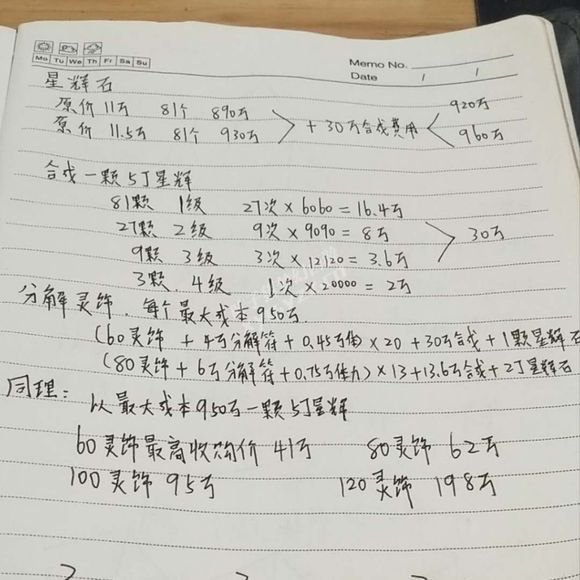 Mo Tu We Th Fr Sa Su
Memo No.
Date / /
星辉石
原价 11万 81个 890万
原价 11.5万 81个 930万
+30万合成费用
920万
960万
合成一颗5丁星辉
81颗 1级 27次×6060=16.4万
27颗 2级 9次×9090=8万
9颗 3级 3次×12120=3.6万
3颗. 4级 1次×20000=2万
30万
分解灵饰.每个最大成本950万
(60灵饰+4万分解符+0.45万体)×20+30万合成+1颗星辉石
(80灵饰+6万分解符+0.75万体力)×13+13.6万合成+2丁星辉石
同理:
以最大成本950万一颗5丁星辉
60灵饰最高收购价41万 80灵饰 62万
100灵饰 95万 120灵饰 198万